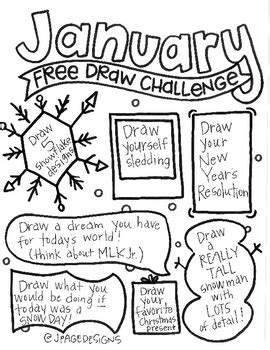 January
FREE DRAW CHALLENGE
Draw
5
snowflake
designs
Draw
yourself
sledding
Draw
Your
New
Years
Resolution
Draw a dream you have
for today's world!
(think about MLK Jr.)
Draw
a
REALLY
TALL
snowman
with
LOTS
of detail!!
Draw what you
would be doing if
today was a
SNOW DAY!
Draw
your
favorite
Christmas
present
© JPAGEDESIGNS